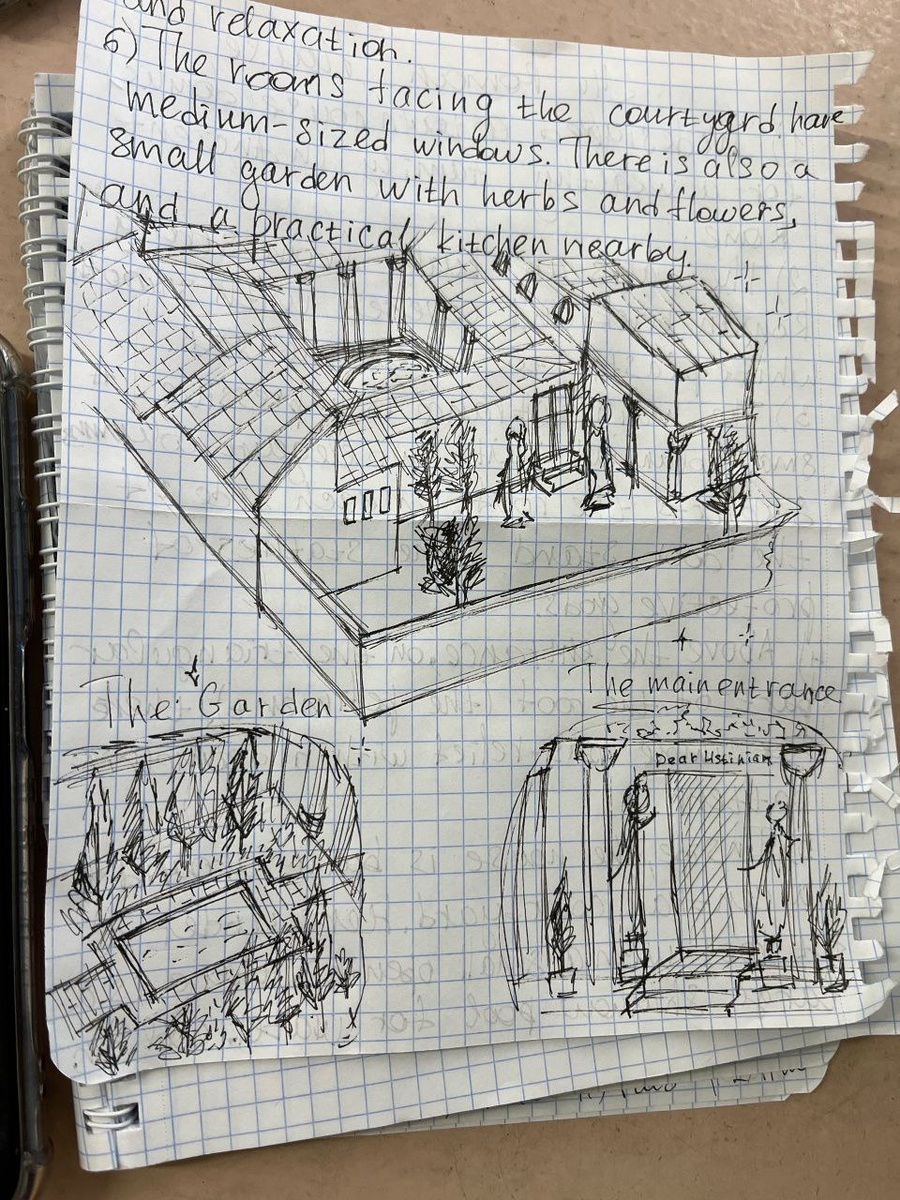 and relaxation.
6) The rooms facing the courtyard have
medium-sized windows. There is also a
small garden with herbs and flowers,
and a practical kitchen nearby.
The Garden
The main entrance
Dear Ustiniam